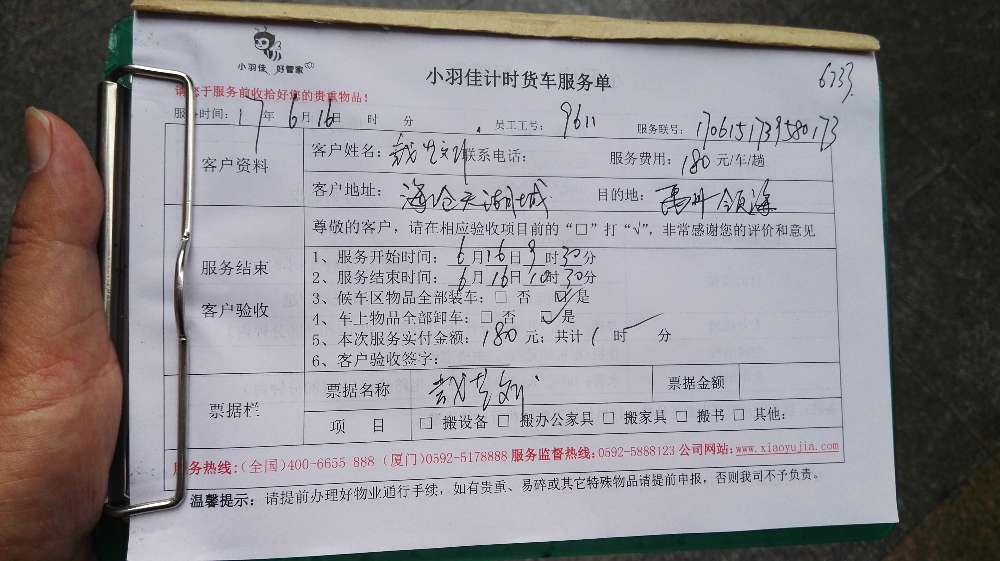 小羽佳 好管家
小羽佳计时货车服务单
6733
请您于服务前收拾好您的贵重物品！
服务时间：17年6月16日 时 分 员工工号：9611 服务联号：1706151739580173
客户资料
客户姓名： 联系电话： 服务费用：180元/车/趟
客户地址：海沧天湖城 目的地：禹州领海
尊敬的客户，请在相应验收项目前的“□”打“√”，非常感谢您的评价和意见
服务结束
客户验收
1、服务开始时间：6月16日9时30分
2、服务结束时间：6月16日10时30分
3、候车区物品全部装车：□ 否 ☑ 是
4、车上物品全部卸车：□ 否 ☑ 是
5、本次服务实付金额：180元；共计1时 分
6、客户验收签字：
票据栏
票据名称 票据金额
项 目 □ 搬设备 □ 搬办公家具 □ 搬家具 □ 搬书 □ 其他：
服务热线：(全国)400-6655 888 (厦门)0592-5178888 服务监督热线：0592-5888123 公司网站：www.xiaoyujia.com
温馨提示：请提前办理好物业通行手续，如有贵重、易碎或其它特殊物品请提前申报，否则我司不予负责。